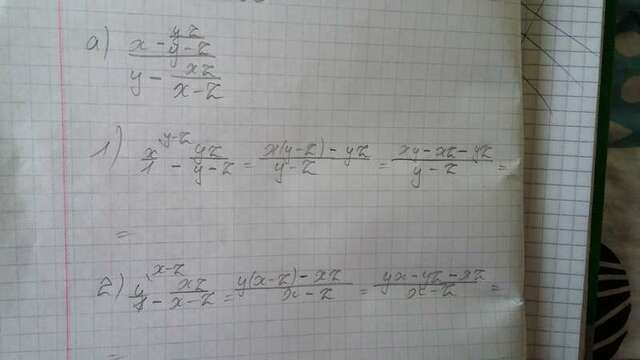 a) (x - yz/(y-z)) / (y - xz/(x-z))
1) x^{·y-z}/1 - yz/(y-z) = (x(y-z) - yz)/(y-z) = (xy - xz - yz)/(y-z) =
=
2) y^{x-z}/1 - xz/(x-z) = (y(x-z) - xz)/(x-z) = (yx - yz - xz)/(x-z) =
=